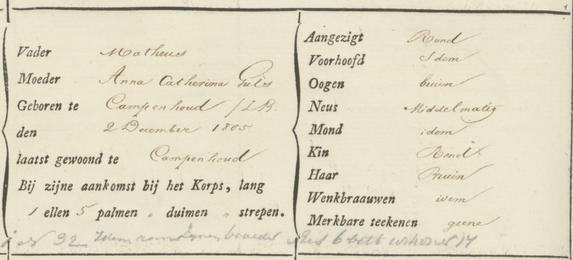 Vader Matheus
Moeder Anna Catherina Giels
Geboren te Campenhoud /Z.B.
den 2 December 1805
laatst gewoond te Campenhoud
Bij zijne aankomst bij het Korps, lang
1 ellen 5 palmen " duimen " strepen.
Aangezigt Rond
Voorhoofd Idem
Oogen bruin
Neus Middelmatig
Mond idem
Kin Rond
Haar Bruin
Wenkbraauwen idem
Merkbare teekenen geene